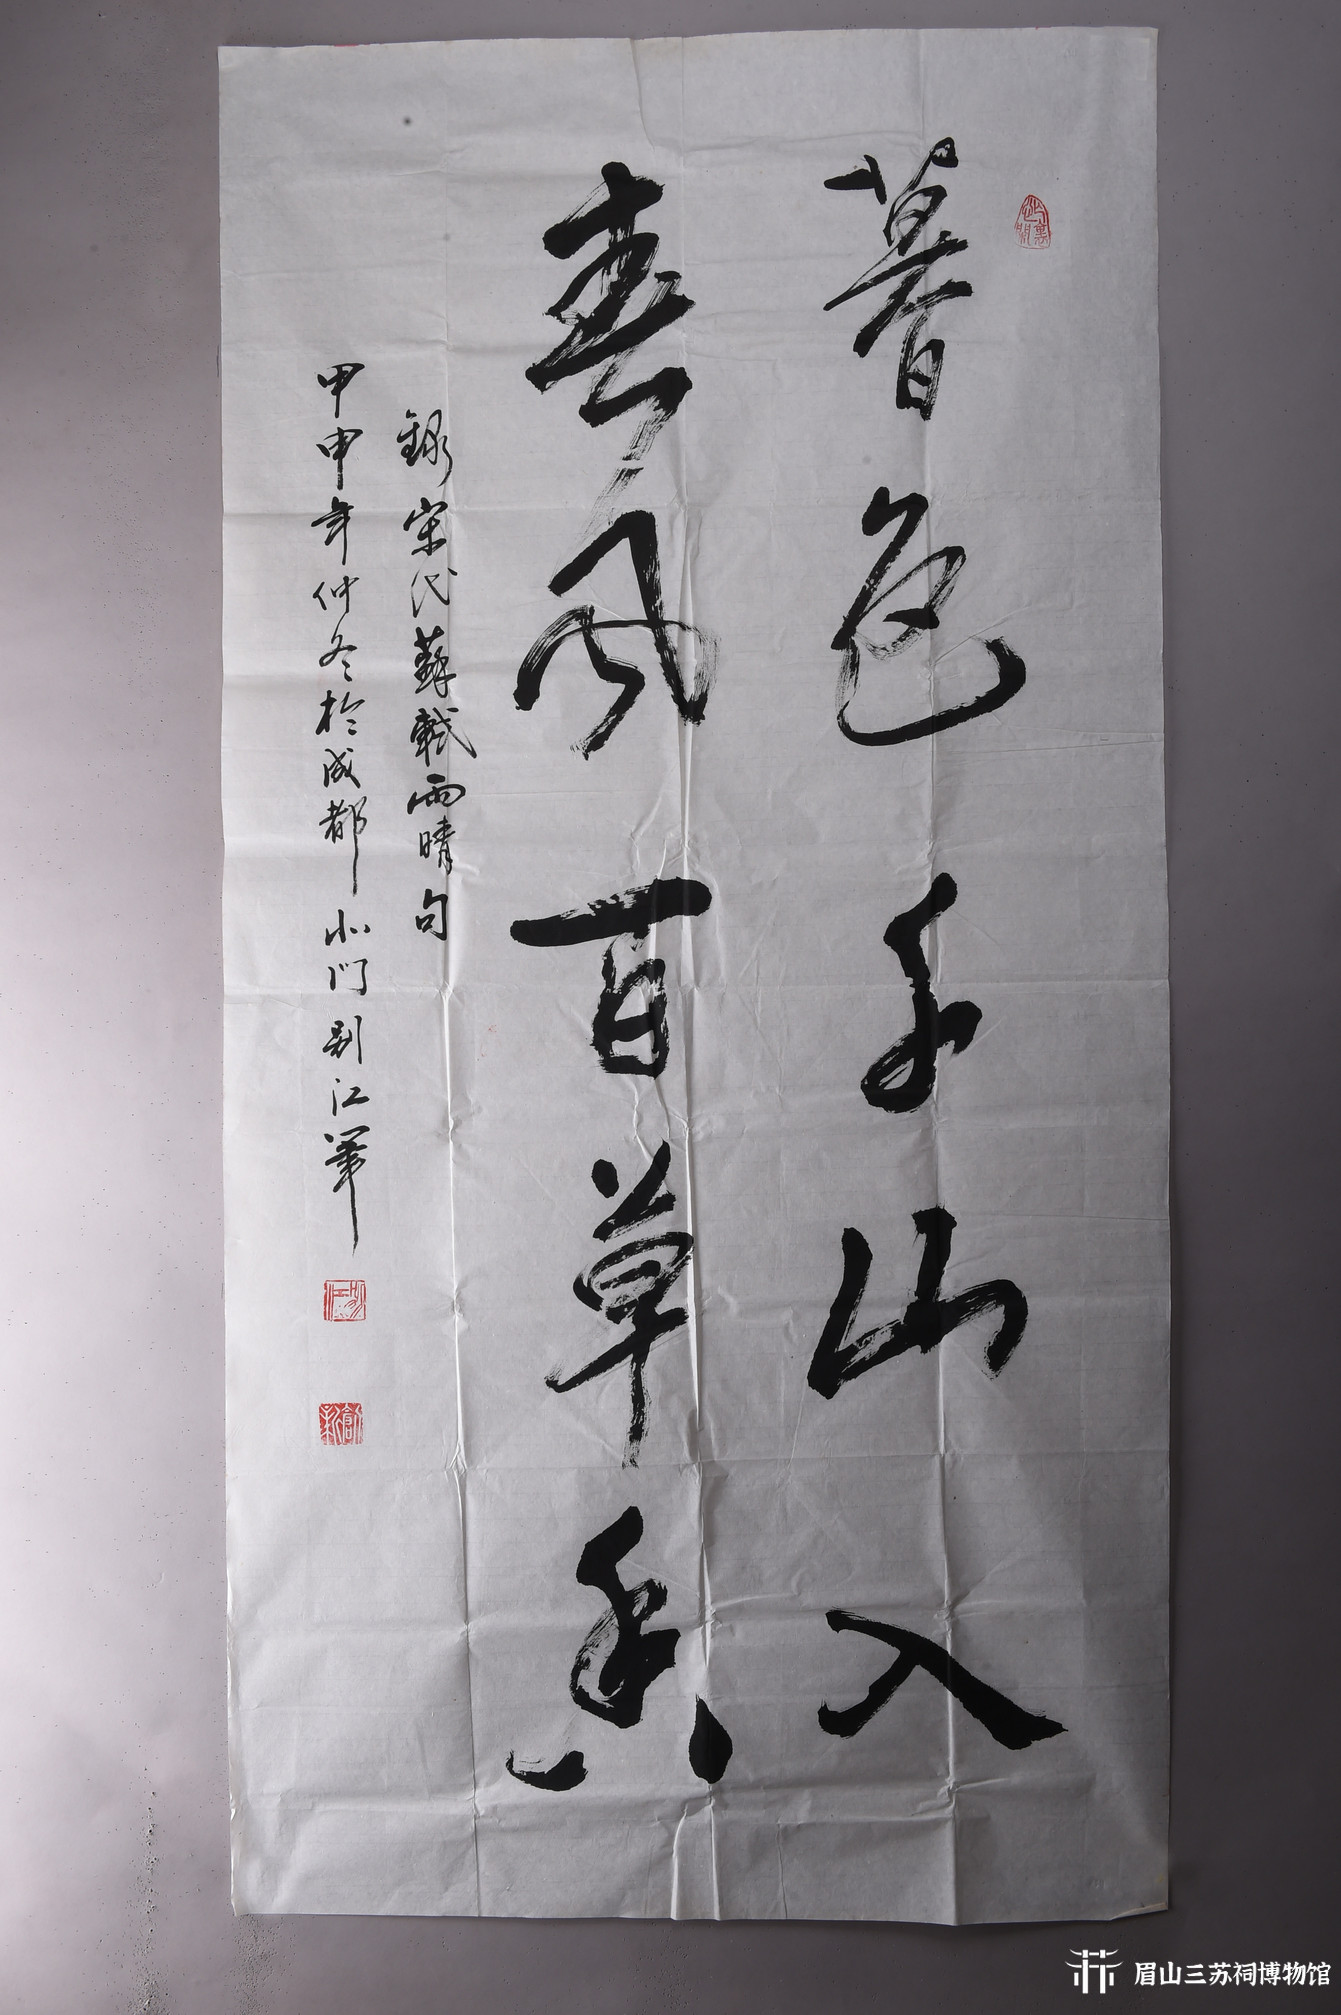 暮色千山入
春风百草香
録宋代蘇軾雨晴句
甲申年仲冬於成都北门别江筆
眉山三苏祠博物馆